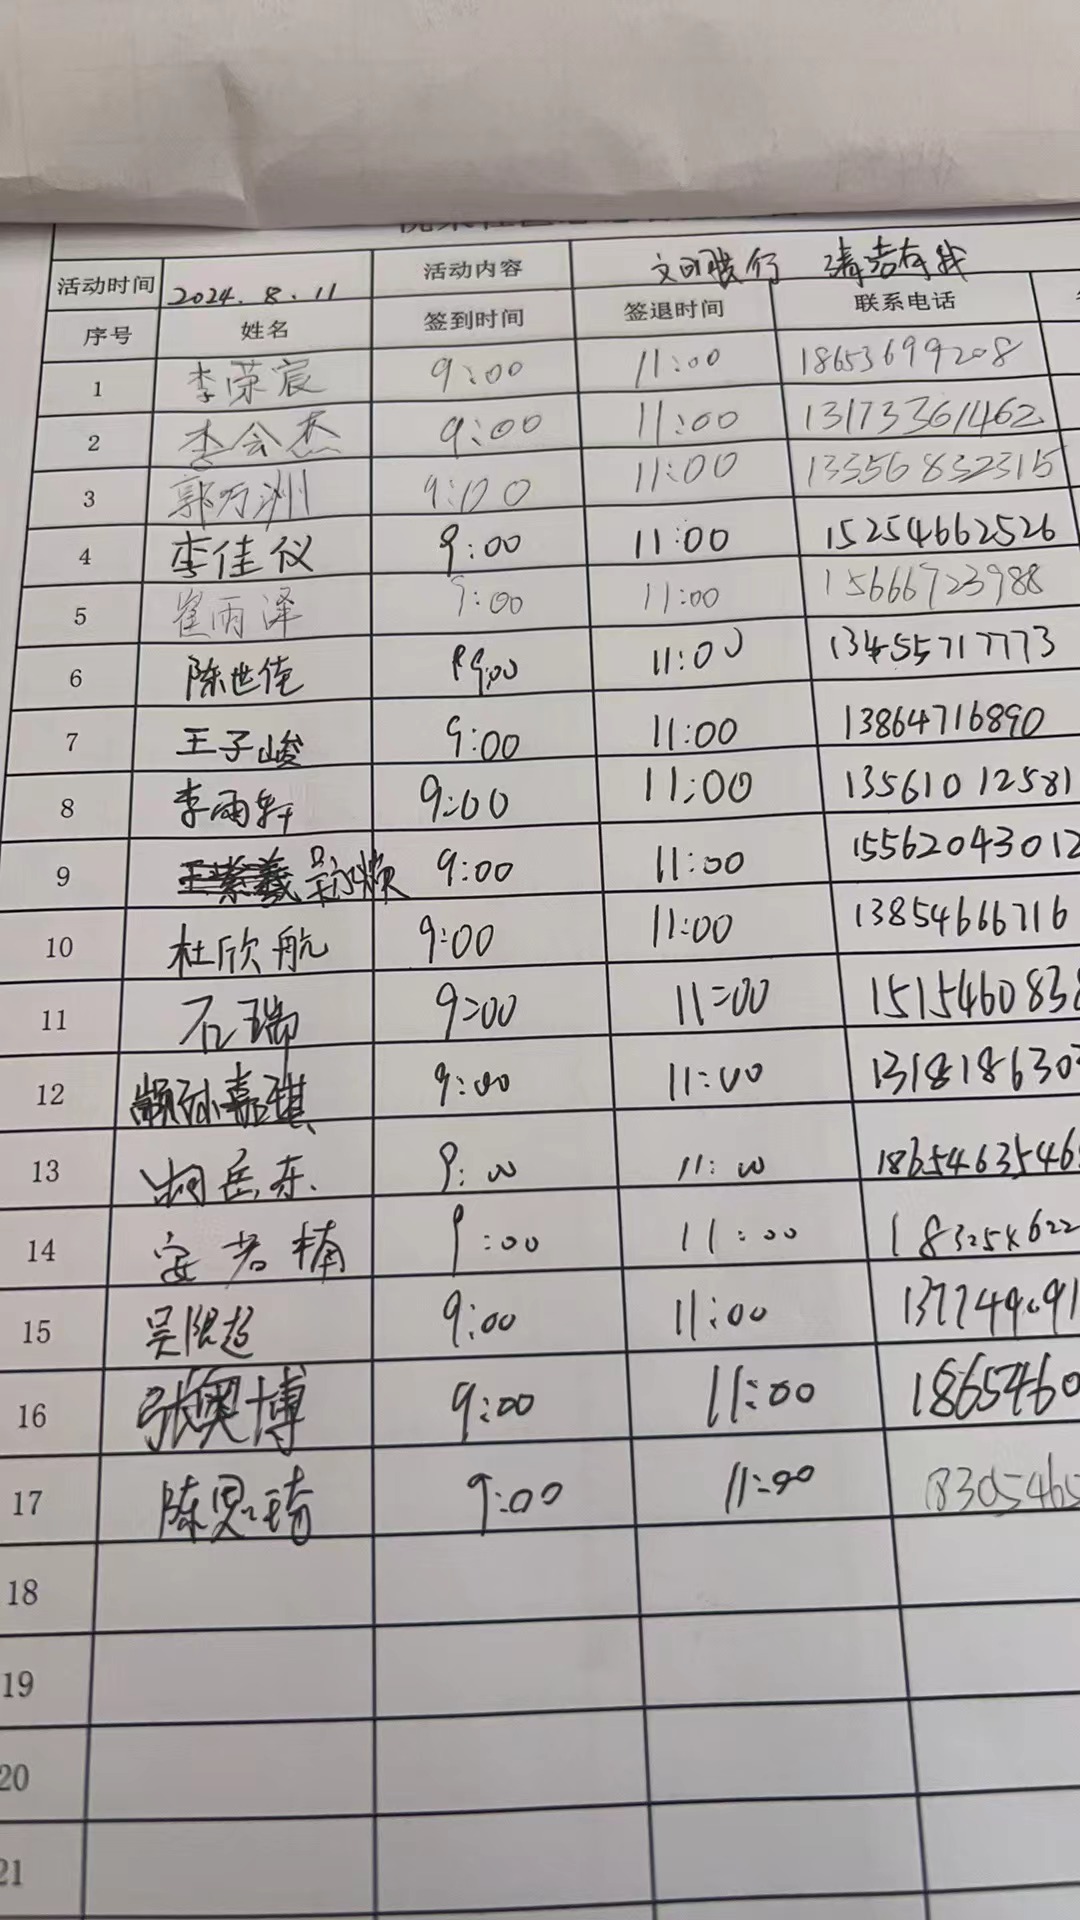 活动时间 2024.8.11 活动内容 文明骑行 清洁有我
序号 姓名 签到时间 签退时间 联系电话
1 李荣宸 9:00 11:00 18653699208
2 李会杰 9:00 11:00 13173361462
3 郭万洲 9:00 11:00 13356832315
4 李佳仪 9:00 11:00 15254662526
5 崔雨泽 9:00 11:00 15666723988
6 陈世佳 9:00 11:00 13455717773
7 王子峻 9:00 11:00 13864716890
8 李雨轩 9:00 11:00 13561012581
9 9:00 11:00 15562043012
10 杜欣航 9:00 11:00 13854666716
11 石瑞 9:00 11:00 1515460838
12 颛孙嘉琪 9:00 11:00 131818630
13 岳东 9:00 11:00 1865463546
14 安若楠 9:00 11:00 183254622
15 吴限超 9:00 11:00
16 张奥博 9:00 11:00 1865460
17 陈思琦 9:00 11:00 18305465
18
19
20
21